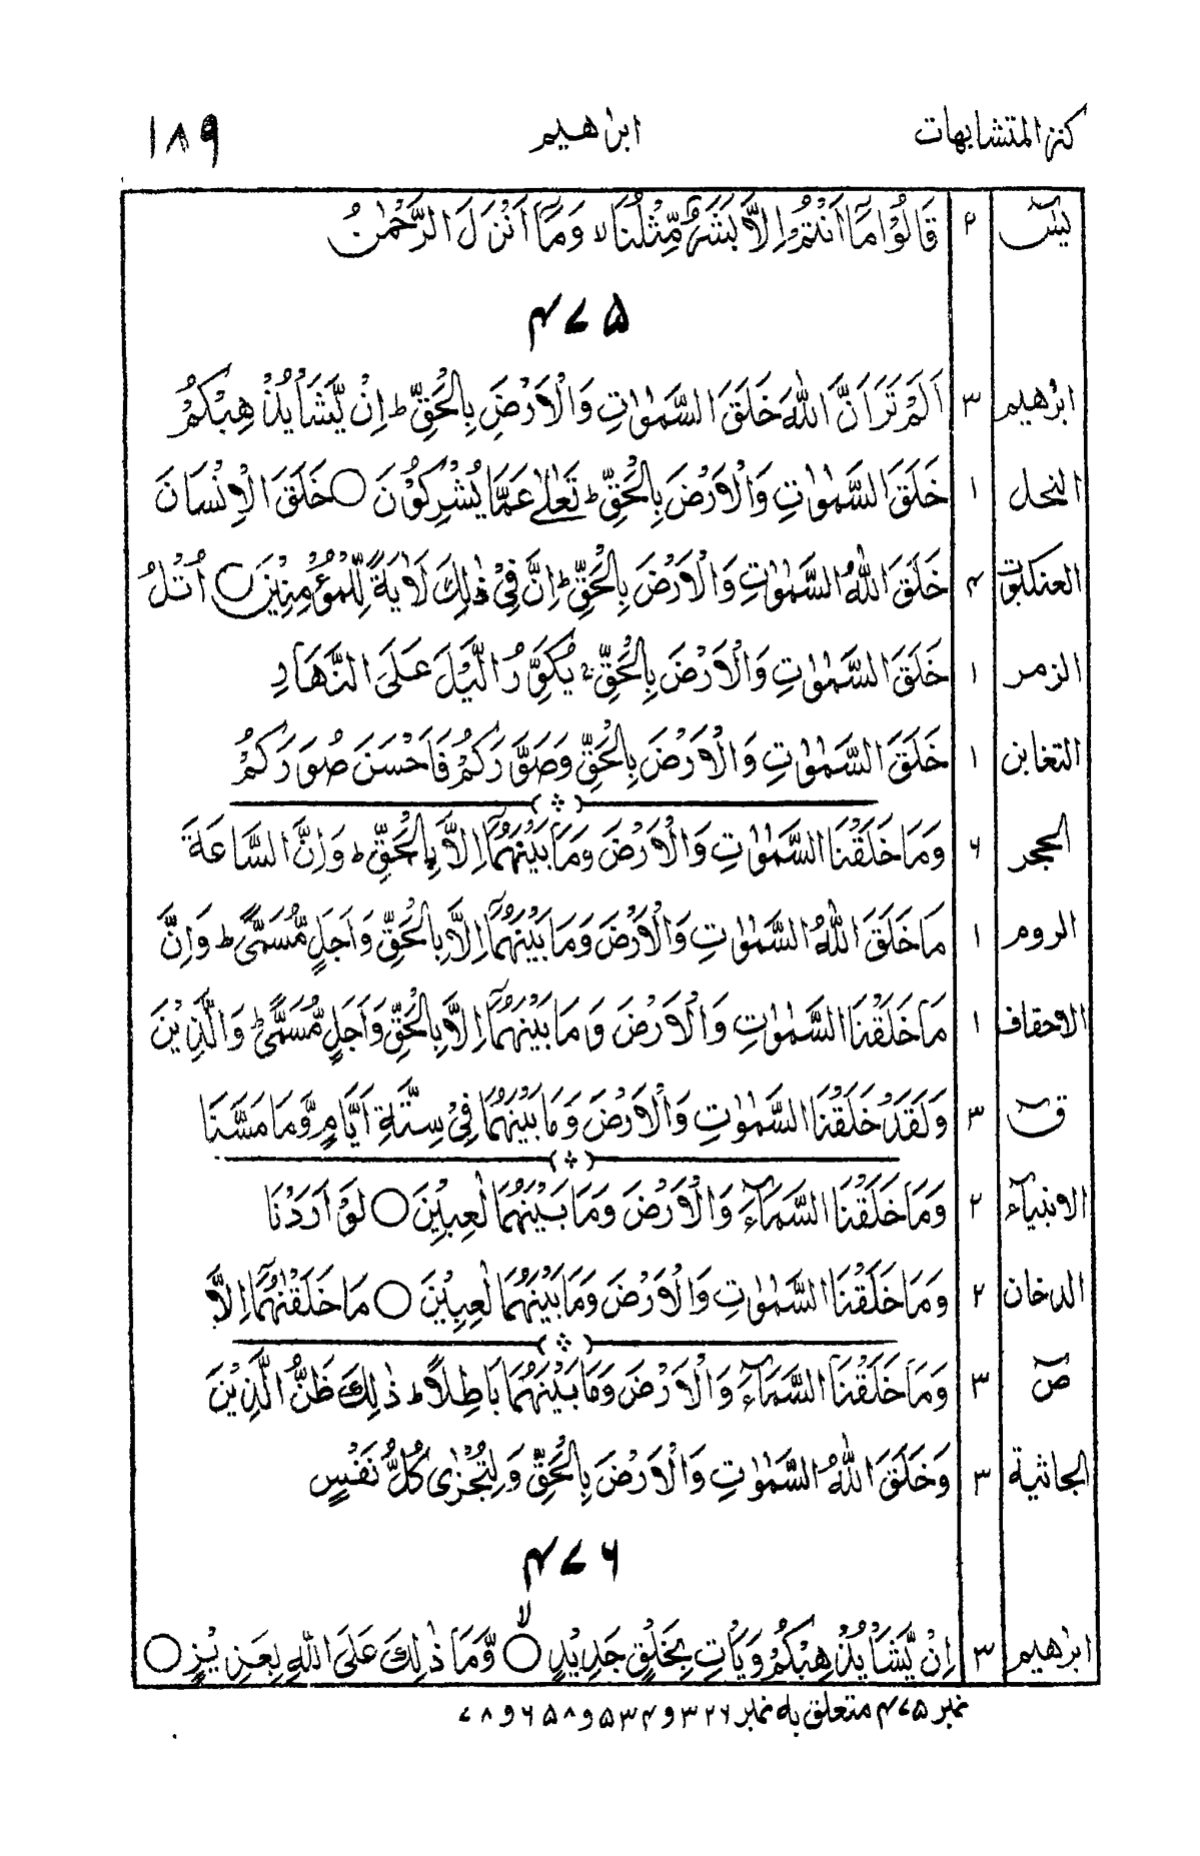 كنز المتشابهات ابرٰهيم ١٨٩
يٰسٓ ٢ قَالُوْا مَآ اَنْتُمْ اِلَّا بَشَرٌ مِّثْلُنَا ۙ وَمَآ اَنْزَلَ الرَّحْمٰنُ
۴۷۵
ابرٰهيم ٣ اَلَمْ تَرَ اَنَّ اللّٰهَ خَلَقَ السَّمٰوٰتِ وَالْاَرْضَ بِالْحَقِّ ؕ اِنْ يَّشَاْ يُذْهِبْكُمْ
النحل ١ خَلَقَ السَّمٰوٰتِ وَالْاَرْضَ بِالْحَقِّ ؕ تَعٰلٰى عَمَّا يُشْرِكُوْنَ ○ خَلَقَ الْاِنْسَانَ
العنكبوت ۴ خَلَقَ اللّٰهُ السَّمٰوٰتِ وَالْاَرْضَ بِالْحَقِّ ؕ اِنَّ فِيْ ذٰلِكَ لَاٰيَةً لِّلْمُؤْمِنِيْنَ ○ اُتْلُ
الزمر ١ خَلَقَ السَّمٰوٰتِ وَالْاَرْضَ بِالْحَقِّ ۚ يُكَوِّرُ الَّيْلَ عَلَى النَّهَارِ
التغابن ١ خَلَقَ السَّمٰوٰتِ وَالْاَرْضَ بِالْحَقِّ وَصَوَّرَكُمْ فَاَحْسَنَ صُوَرَكُمْ
الحجر ۶ وَمَا خَلَقْنَا السَّمٰوٰتِ وَالْاَرْضَ وَمَا بَيْنَهُمَآ اِلَّا بِالْحَقِّ ؕ وَاِنَّ السَّاعَةَ
الروم ١ مَا خَلَقَ اللّٰهُ السَّمٰوٰتِ وَالْاَرْضَ وَمَا بَيْنَهُمَآ اِلَّا بِالْحَقِّ وَاَجَلٍ مُّسَمًّى ؕ وَاِنَّ
الاحقاف ١ مَا خَلَقْنَا السَّمٰوٰتِ وَالْاَرْضَ وَمَا بَيْنَهُمَآ اِلَّا بِالْحَقِّ وَاَجَلٍ مُّسَمًّى ؕ وَالَّذِيْنَ
قٓ ٣ وَلَقَدْ خَلَقْنَا السَّمٰوٰتِ وَالْاَرْضَ وَمَا بَيْنَهُمَا فِيْ سِتَّةِ اَيَّامٍ وَّمَا مَسَّنَا
الانبيآء ٢ وَمَا خَلَقْنَا السَّمَآءَ وَالْاَرْضَ وَمَا بَيْنَهُمَا لٰعِبِيْنَ ○ لَوْ اَرَدْنَا
الدخان ٢ وَمَا خَلَقْنَا السَّمٰوٰتِ وَالْاَرْضَ وَمَا بَيْنَهُمَا لٰعِبِيْنَ ○ مَا خَلَقْنٰهُمَآ اِلَّا
صٓ ٣ وَمَا خَلَقْنَا السَّمَآءَ وَالْاَرْضَ وَمَا بَيْنَهُمَا بَاطِلًا ؕ ذٰلِكَ ظَنُّ الَّذِيْنَ
الجاثية ٣ وَخَلَقَ اللّٰهُ السَّمٰوٰتِ وَالْاَرْضَ بِالْحَقِّ وَلِتُجْزٰى كُلُّ نَفْسٍ
۴۷۶
ابرٰهيم ٣ اِنْ يَّشَاْ يُذْهِبْكُمْ وَيَاْتِ بِخَلْقٍ جَدِيْدٍ ○ۙ وَّمَا ذٰلِكَ عَلَى اللّٰهِ بِعَزِيْزٍ ○
نمبر ۴۷۵ متعلق به نمبر ۳۲۶ و ۵۳۴ و ۶۵۸ و ۷۸۶